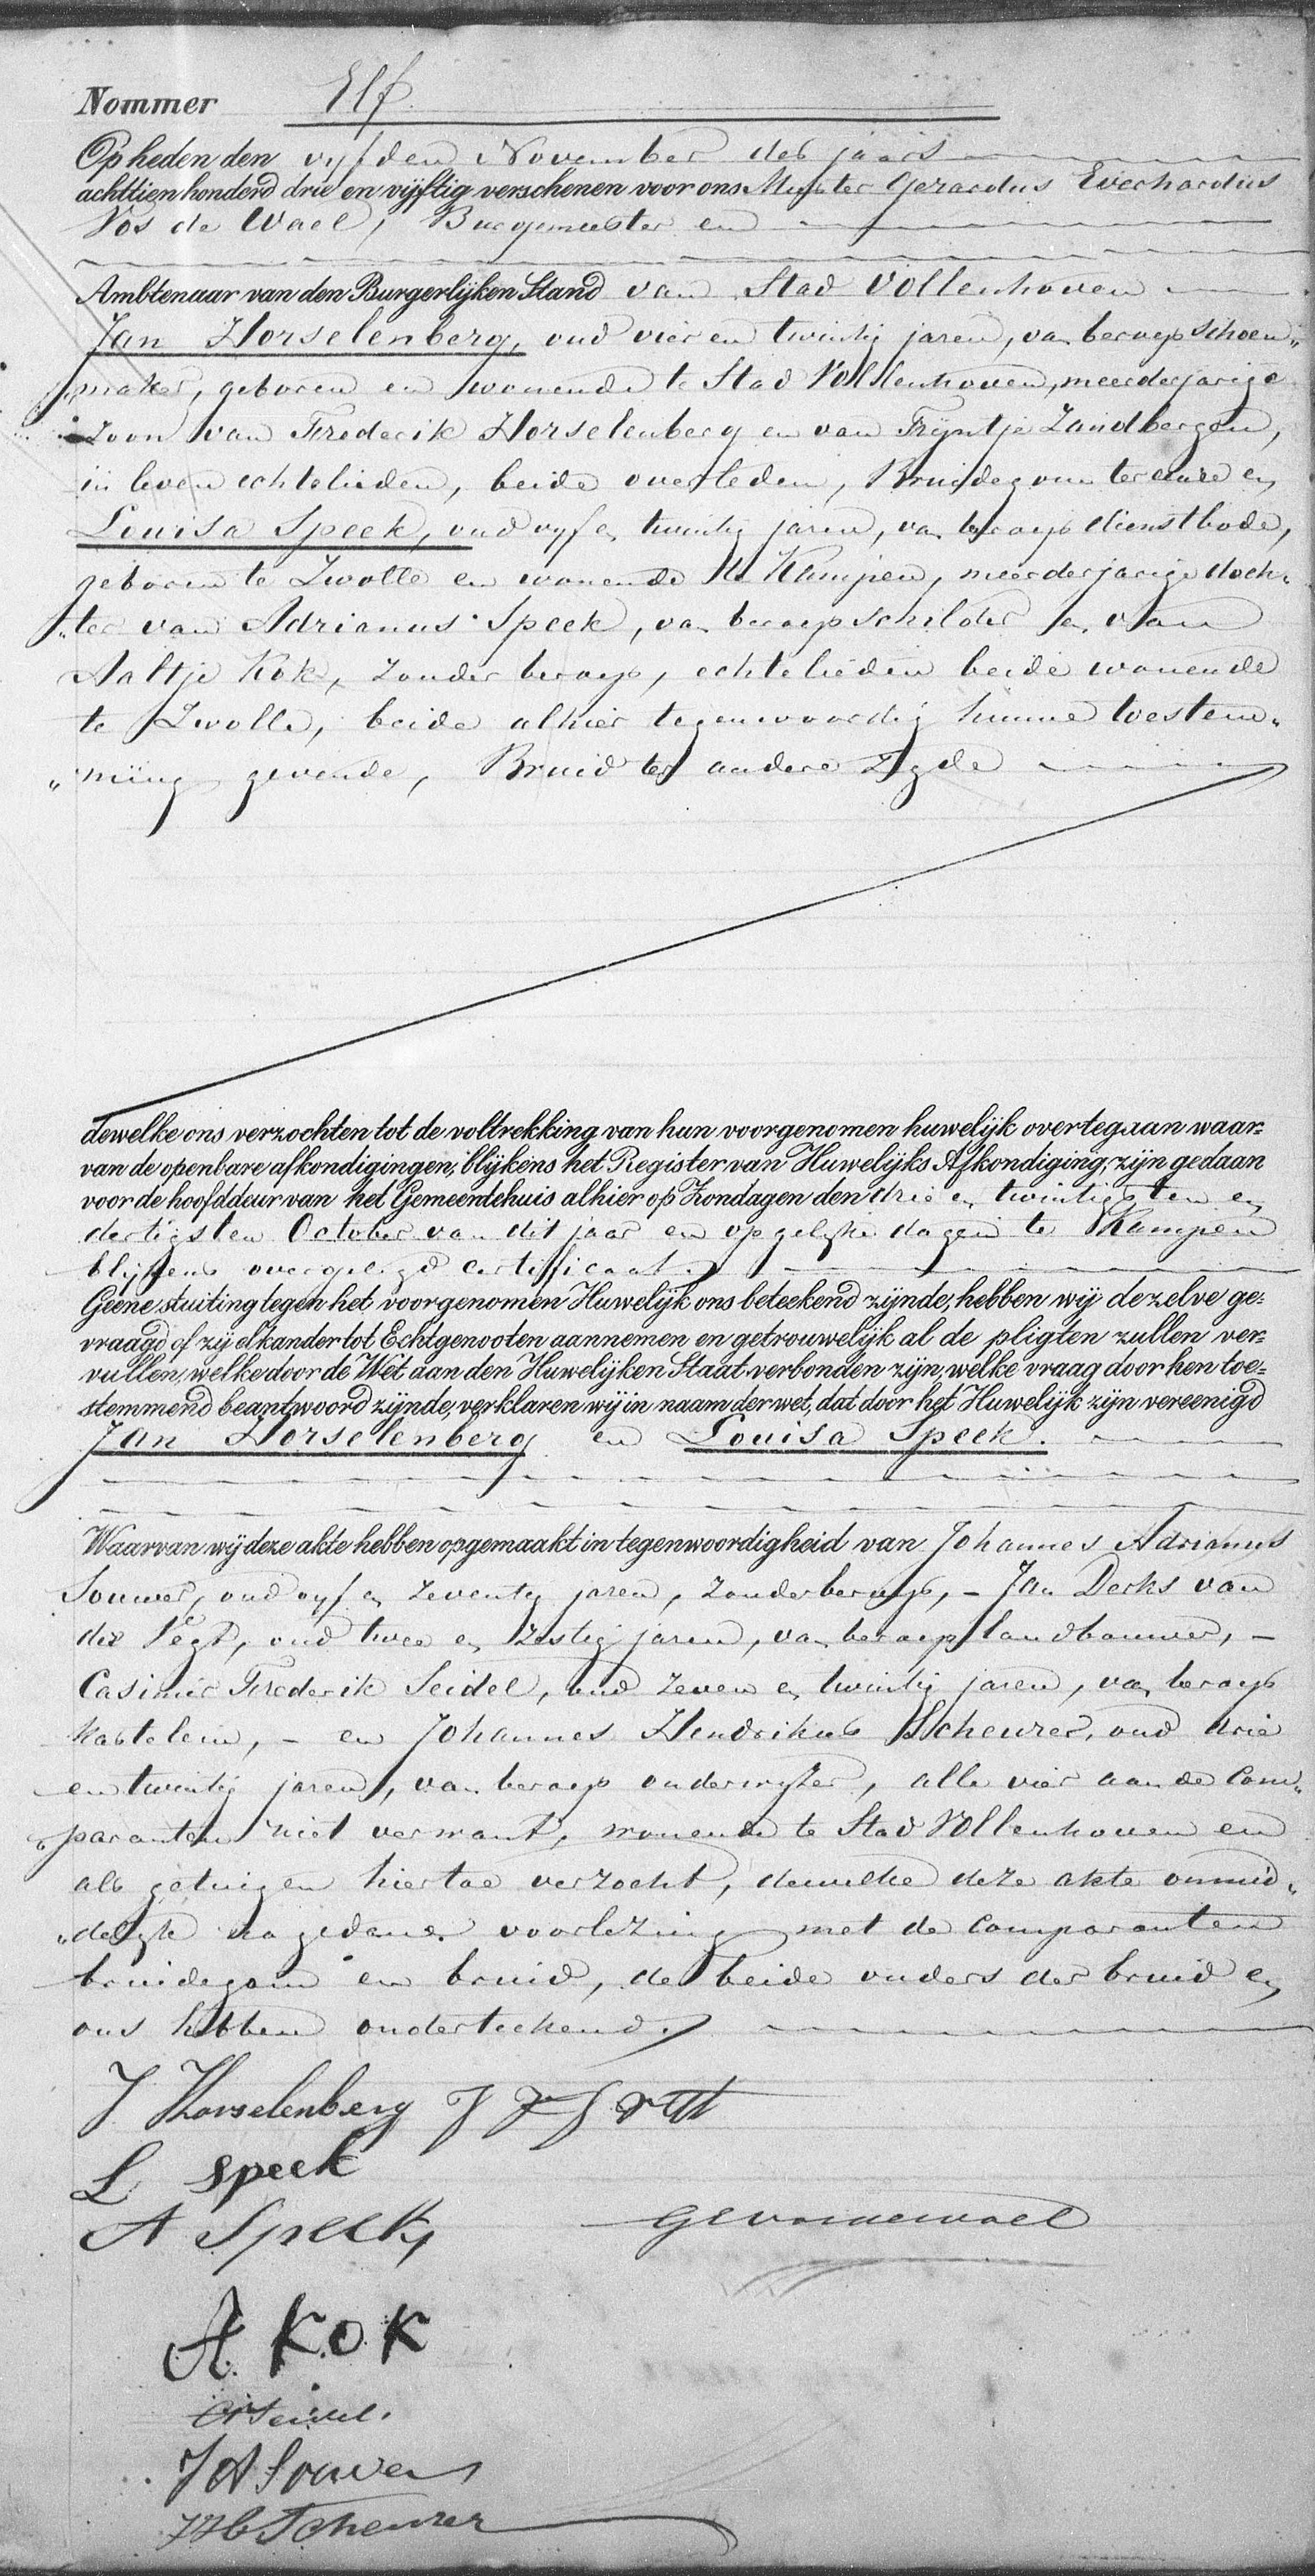 Nommer Elf.
Op heden den vyfden November des jaars
achttien honderd drie en vijftig verschenen voor ons Meester Gerardus Everhardus
Vos de Wael, Burgemeester en
Ambtenaar van den Burgerlijken Stand van Stad Vollenhoven
Jan Horselenberg, oud vier en twintig jaren, van beroep schoen„
„maker, geboren en wonende te Stad Vollenhoven, meerderjarige
Zoon van Frederik Horselenberg en van Trijntje Zandbergen,
in leven echtelieden, beide overleden, Bruidegom ter eenre en
Louisa Speek, oud vyf en twintig jaren, van beroep dienstbode,
geboren te Zwolle en wonende te Kampen, meerderjarige doch„
„ter van Adrianus Speek, van beroep schilder en van
Aaltje Kok, zonder beroep, echtelieden beide wonende
te Zwolle, beide alhier tegenwoordig hunne toestem„
„ming gevende, Bruid ter andere Zyde
dewelke ons verzochten tot de voltrekking van hun voorgenomen huwelijk overtegaan waar-
van de openbare afkondigingen, blijkens het Register van Huwelijks Afkondiging, zijn gedaan
voor de hoofddeur van het Gemeentehuis alhier op Zondagen den drie en twintigsten en
dertigsten October van dit jaar en op gelyke dagen te Kampen
blijkens overgelegd certificaat.
Geene stuiting tegen het voorgenomen Huwelijk ons beteekend zijnde, hebben wij dezelve ge-
vraagd of zij elkander tot Echtgenooten aannemen en getrouwelijk al de pligten zullen ver-
vullen, welke door de Wet aan den Huwelijken Staat verbonden zijn, welke vraag door hen toe-
stemmend beantwoord zijnde, verklaren wij in naam der wet, dat door het Huwelijk zijn vereenigd
Jan Horselenberg en Louisa Speek.
Waarvan wij deze akte hebben opgemaakt in tegenwoordigheid van Johannes Adrianus
Souwer, oud vyf en zeventig jaren, zonder beroep, – Jan Derks van
der Vegt, oud twee en zestig jaren, van beroep landbouwer, –
Casimir Frederik Seidel, oud zeven en twintig jaren, van beroep
kastelein, – en Johannes Hendrikus Scheurer, oud drie
en twintig jaren, van beroep onderwyzer, alle vier aan de Com„
„paranten niet vermant, wonende te Stad Vollenhoven en
als getuigen hiertoe verzocht, dewelke deze akte onmid„
„delyk na gedane voorlezing met de comparanten
bruidegom en bruid, de beide ouders der bruid en
ons hebben onderteekend.
J Horselenberg
L Speek
A Speek
GEVosdeWael
A KOK
CFSeidel.
JASouwer
JHScheurer